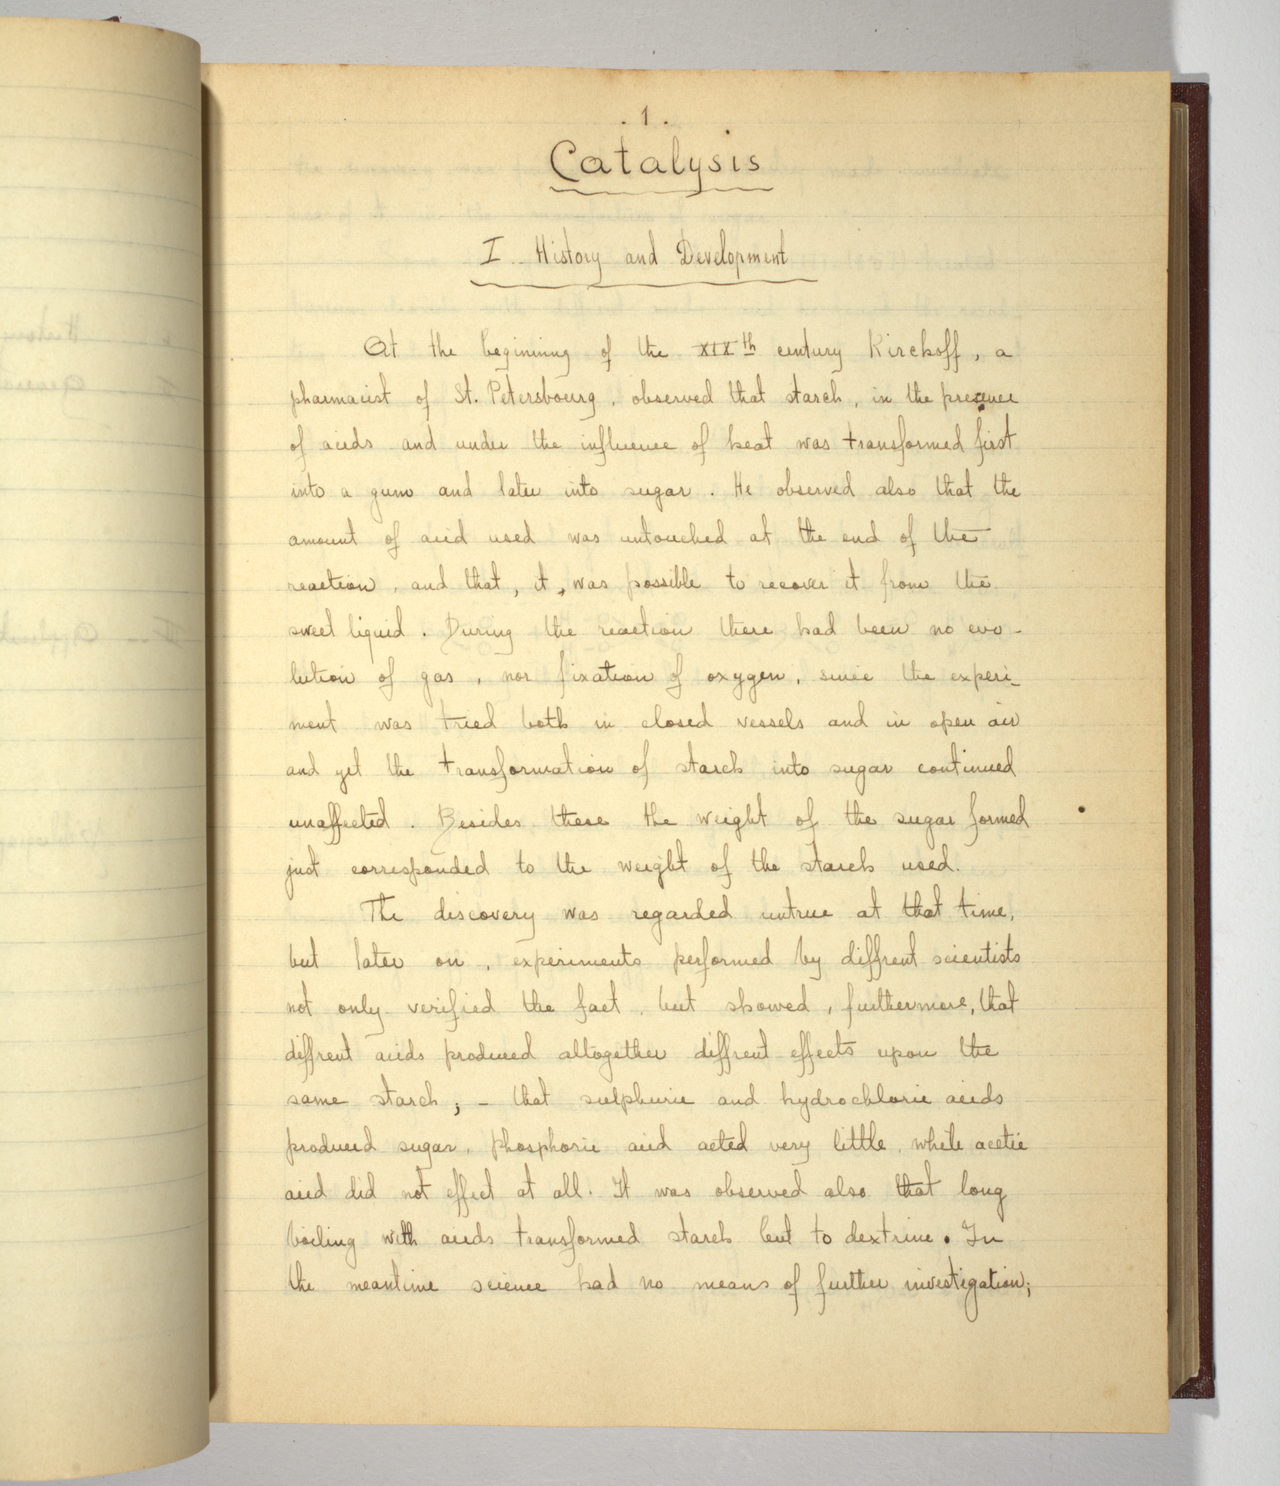 . 1 .
Catalysis
I. History and Development
At the begininng of the XIXth century Kirckoff, a
pharmacist of St. Petersbourg, observed that starch, in the presence
of acids and under the influence of heat was transformed first
into a gum and later into sugar. He observed also that the
amount of acid used was untouched at the end of the
reaction, and that, it, was possible to recover it from the
sweet liquid. During the reaction there had been no evo-
lution of gas, nor fixation of oxygen, since the experi-
ment was tried both in closed vessels and in open air
and yet the transformation of starch into sugar continued
unaffected. Besides these the weight of the sugar formed
just corresponded to the weight of the starch used.
The discovery was regarded untrue at that time,
but later on, experiments performed by diffrent scientists
not only verified the fact, but showed, furthermore, that
diffrent acids produced altogether diffrent effects upon the
same starch; - that sulphuric and hydrochloric acids
produced sugar, phosphoric acid acted very little, while acetic
acid did not effect at all. It was observed also that long
boiling with acids transformed starch but to dextrine. In
the meantime science had no means of further investigation;